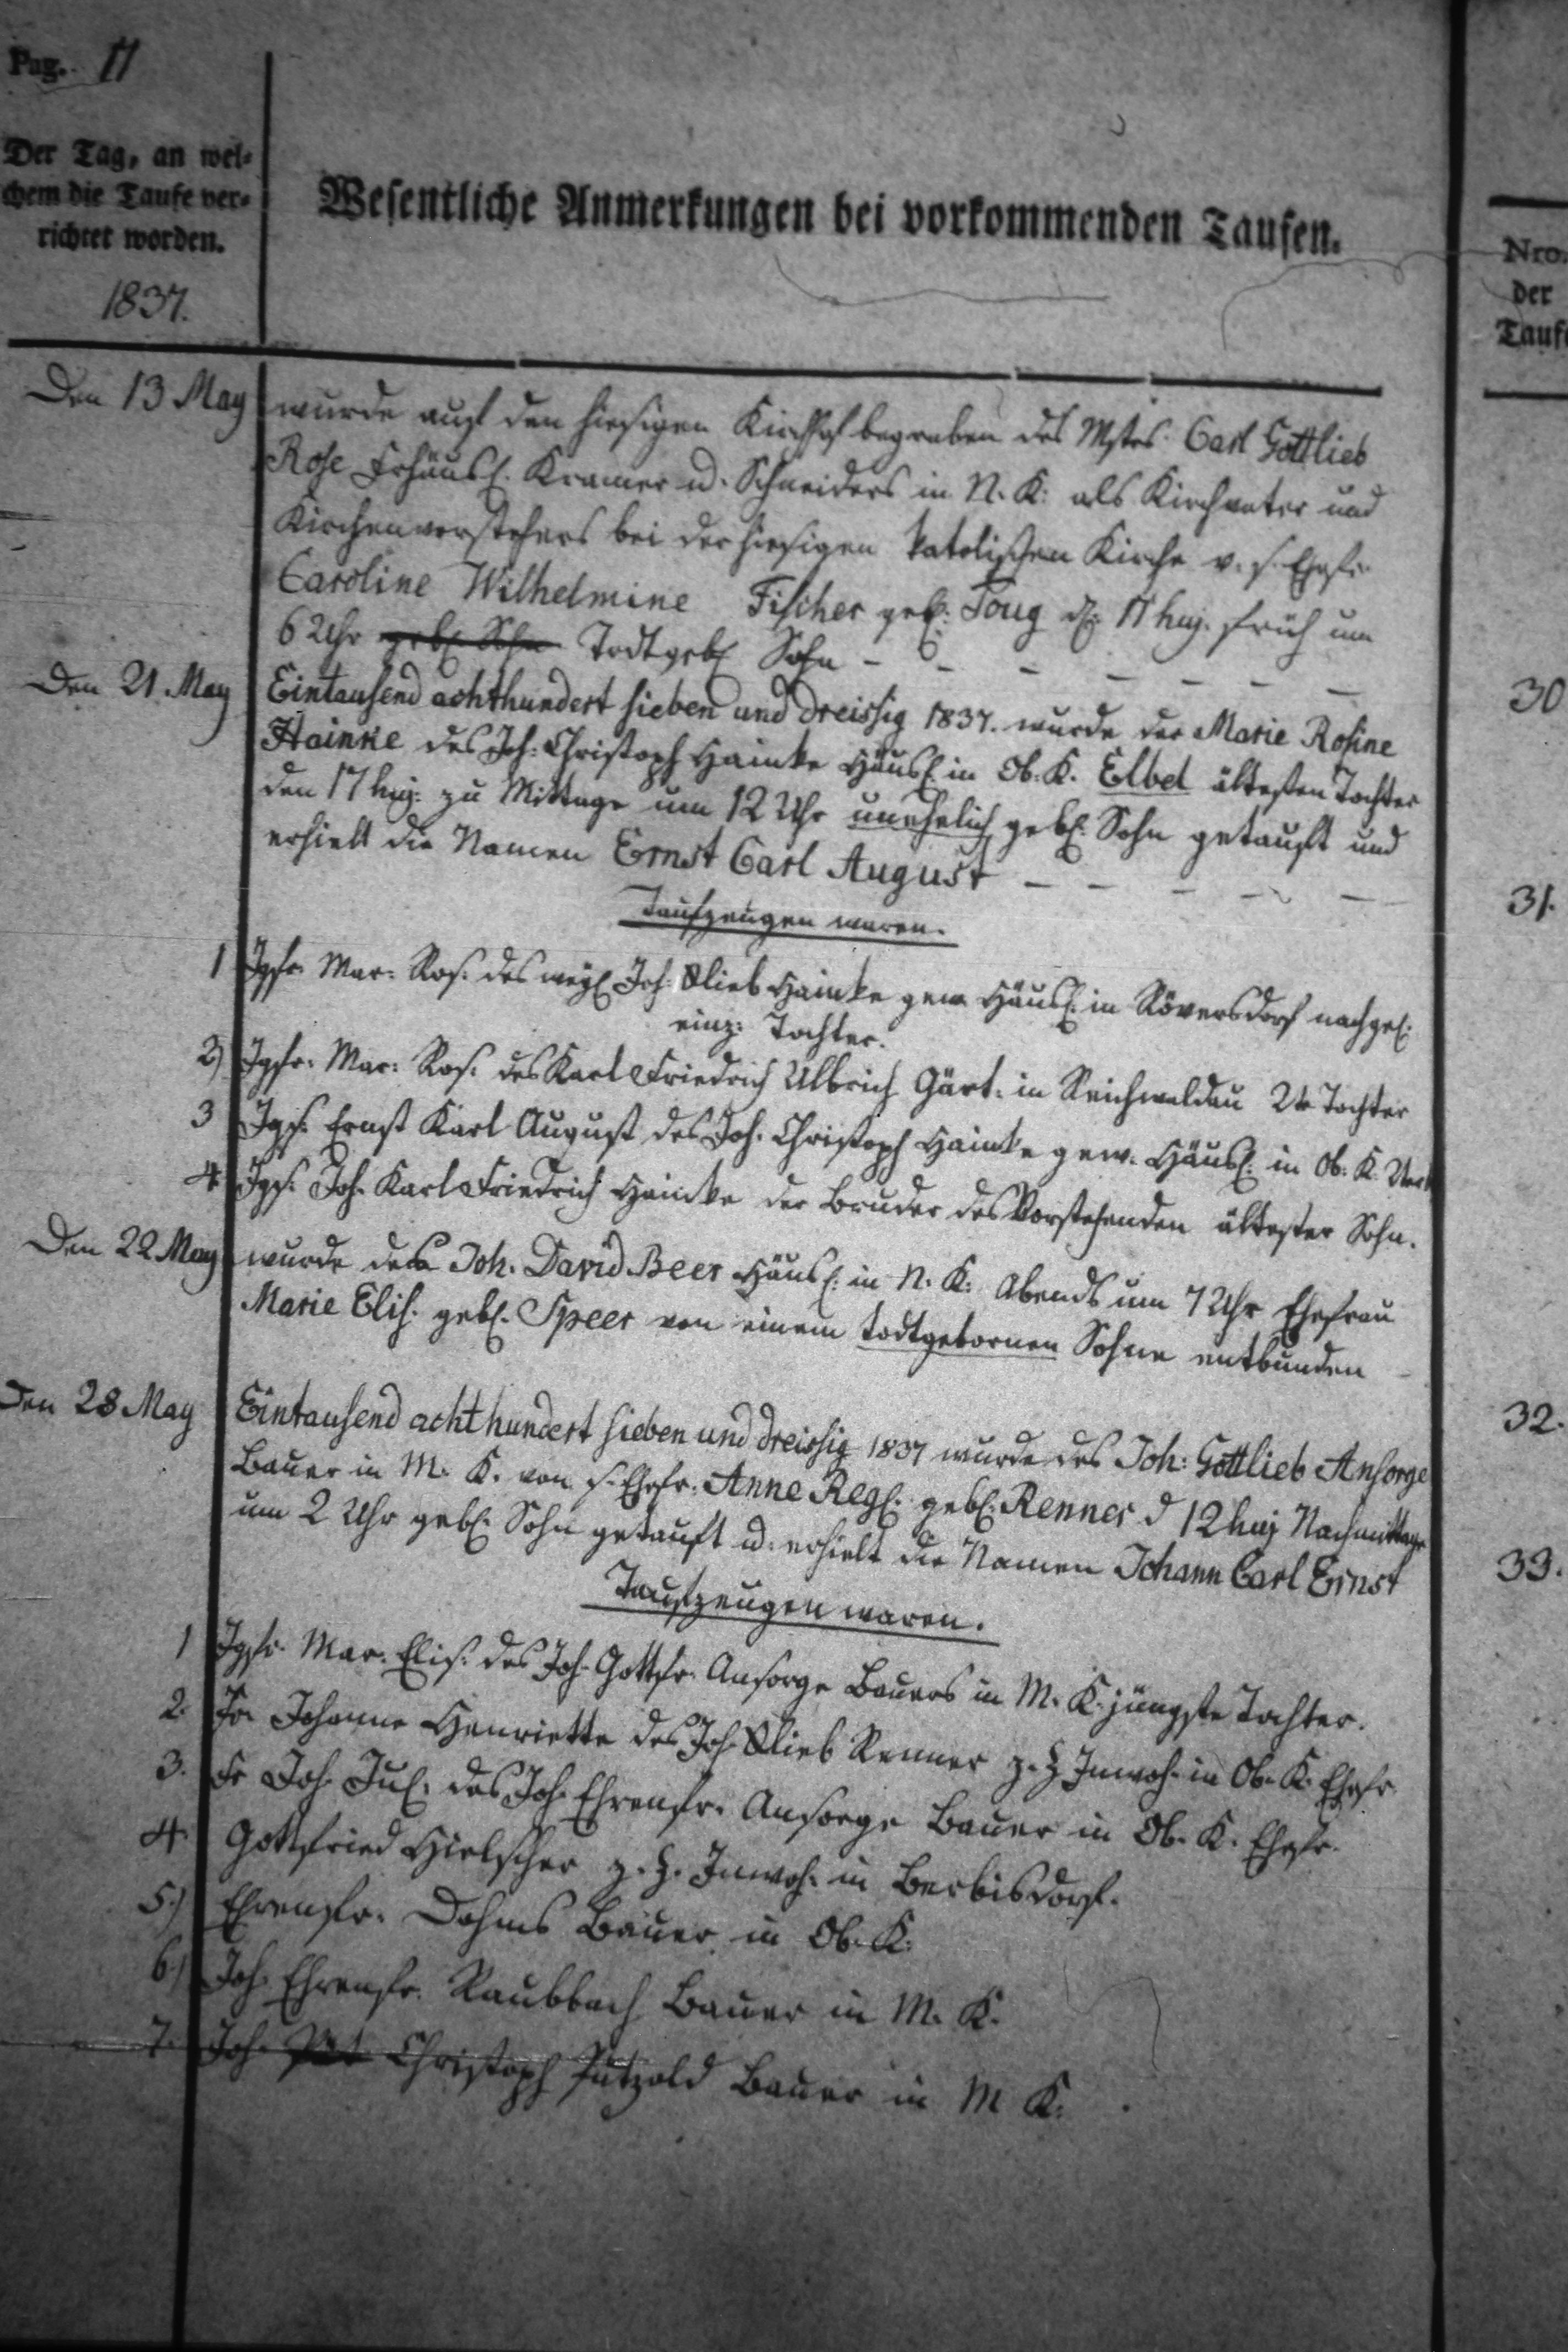 Pag. 11
Der Tag, an wel-
chem die Taufe ver-
richtet worden.
1837.
Wesentliche Anmerkungen bei vorkommenden Taufen.
Nro.
der
Tauf
Den 13 May wurde auf den hiesigen Kirchhof begraben des Mstrs. Carl Gottlieb
Rose Kramer u. Schneiders in N. K. als Kirchvater und
Kirchenvorstehers bei der hiesigen katolischen Kirche v. s. Ehefr.
Caroline Wilhelmine Fischer geb. d. 11 huj. früh um
6 Uhr Todtgeb. Sohn - - - - - - -
Den 21. May Eintausend achthundert sieben und dreissig 1837. wurde der Marie Rosine
30
Hainke des Joh. Christoph Hainke Häusl. in Ob. K. Elbel ältesten Tochter
den 17 huj. zu Mittage um 12 Uhr unehelich geb. Sohn getauft und
erhielt die Namen Ernst Carl August - - - - - -
31.
Taufzeugen waren.
1 Jgfr. Mar. Ros. des weyl. Joh. Glieb Hainke gew. Häusl. in Röversdorf nachgel.
einz. Tochter.
2) Jgfr. Mar. Ros. des Karl Friedrich Ulbrich Gärt. in Reichwaldau 2te Tochter
3 Jgs. Ernst Karl August des Joh. Christoph Hainke gew. Häusl. in Ob. K.
4 Jgs. Joh. Karl Friedrich Hainke der Bruder des Vorstehenden ältester Sohn.
Den 22 May wurde des Joh. David Beer Häusl. in N. K. Abends um 7 Uhr Ehefrau
Marie Elis. geb. Speer von einem todtgebornen Sohne entbunden -
Den 28 May Eintausend acht hundert sieben und dreissig 1837 wurde des Joh. Gottlieb Ansorge
32.
Bauer in M. K. von s. Ehefr. Anne Reg. geb. Renner d 12 huj Nachmittage
um 2 Uhr geb. Sohn getauft u. erhielt die Namen Johann Carl Ernst
33.
Taufzeugen waren.
1 Jgfr. Mar. Elis. des Joh. Gottfr. Ansorge Bauers in M. K. jüngste Tochter.
2. Fr Johanne Henriette des Joh. Glieb Renner z. Z Inwoh. in Ob. K. Ehefr.
3. Fr Joh. Jul. des Joh. Ehrenfr. Ansorge Bauer in Ob. K. Ehefr.
4 Gottfried Hielscher z. Z. Inwoh. in Berbisdorf.
5.) Ehrenfr. Dohms Bauer in Ob. K.
6.) Joh. Ehrenfr. Raubbach Bauer in M. K.
7. Joh. Christoph Pätzold Bauer in M K.